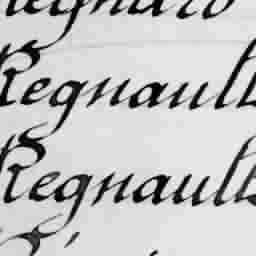 Regnard
Regnault
Regnault